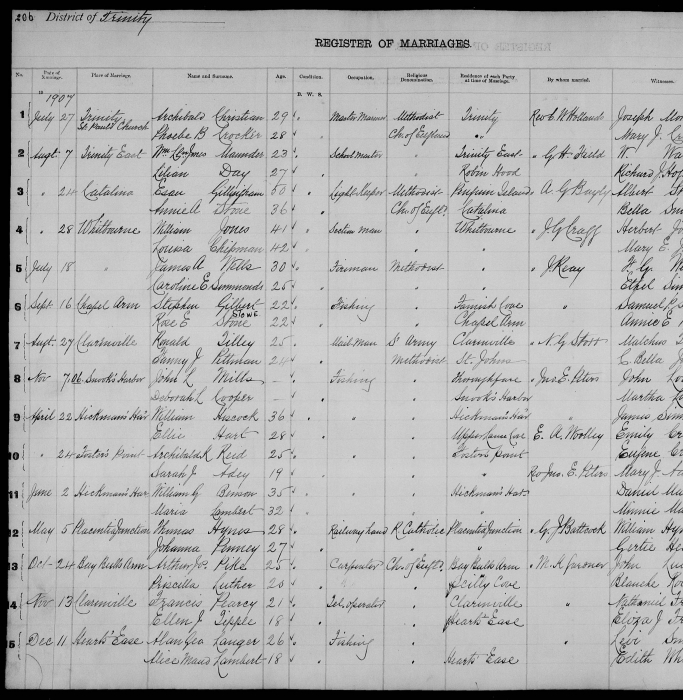 206 District of Trinity
REGISTER OF MARRIAGES
No. Date of Marriage. Place of Marriage. Name and Surname. Age. Condition. Occupation. Religious Denomination. Residence of each Party at time of Marriage. By whom married. Witnesses.
B. W. S.
1907
1 July 27 Trinity Archibald Christian 29 Master Mariner Methodist Trinity Rev C. W. Hollands Joseph
St Paul's Church Phoebe B Crocker 28 Ch. of England " Mary J.
2 Augt 7 Trinity East Wm Maunder 23 School Master " Trinity East " G. H. Field W.
Lilian Day 27 " Robin Hood Richard J
3 " 24 Catalina Esau Gillingham 50 Light Keeper Methodist Island " A. G. Bayly Albert
Annie A Stone 36 Ch. of Engld. Catalina Bella
4 " 28 Whitbourne William Jones 41 Section man " Whitbourne " J G Cragg Herbert
Louisa Chipman 42 " " Mary E.
5 July 18 " James A Wells 30 Fireman Methodist " " J Reay H. G.
Caroline E Simmonds 25 " " Ethel
6 Sept 16 Chapel Arm Stephen Gilbert 22 Fishing " Famish Cove " Samuel
STOWE
Rose E Stone 22 " Chapel Arm Annie E
7 Augt 27 Clarenville Ronald Tilley 25 Mail Man S Army Clarenville " N. G. Stott Malchus
Fanny J Pittman 24 Methodist St. Johns C. Bella
8 Nov 7/06 Snook's Harbor John L Mills — Fishing " Thoroughfare " Jas. E. Peters John
Deborah L Cooper — " Snook's Harbor Martha
9 April 22 Hickman's Har William Hiscock 36 " " Hickman's Har " James
Ellie Hart 28 " Upper Lance Cove E. A. Woolley Emily
10 " 24 Foster's Point Archibald K Reid 25 " " Foster's Point Eugene
Sarah J Adey 19 " " Rev Jas. E. Peters Mary J
11 June 2 Hickman's Har William G Benson 35 " " Hickman's Har " Daniel
Maria Lambert 32 " " Minnie
12 May 5 Placentia Junction Thomas Hynes 28 Railway hand R Catholic Placentia Junction " G. J. Battcock William
Johanna Penney 27 " " Gertie
13 Oct 24 Bay Bulls Arm Arthur Jos. Pike 25 Carpenter Ch. of Engld. Bay Bulls Arm " M. K. Gardner John
Priscilla Luther 20 " Scilly Cove Blanche
14 Nov 13 Clarenville Francis Pearcy 21 Tel. operator " Clarenville " Nathaniel
Ellen J Tipple 18 " Heart's Ease Eloza J
15 Dec 11 Heart's Ease Alan Geo Langer 26 Fishing " " Levi
Alice Maud Lambert 18 " Hearts Ease Edith